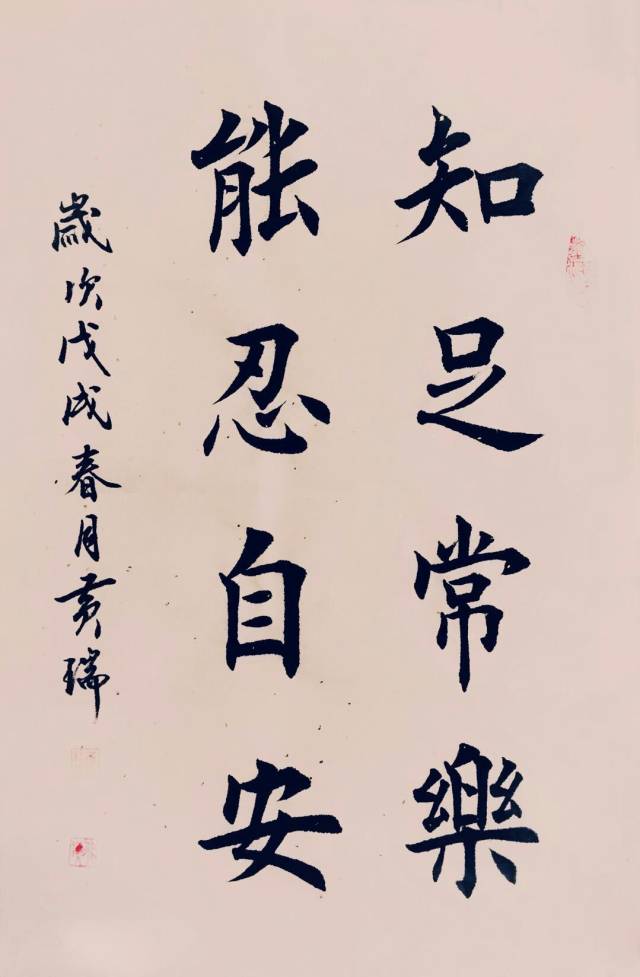 知足常樂
能忍自安
歲次戊戌春月黄瑞